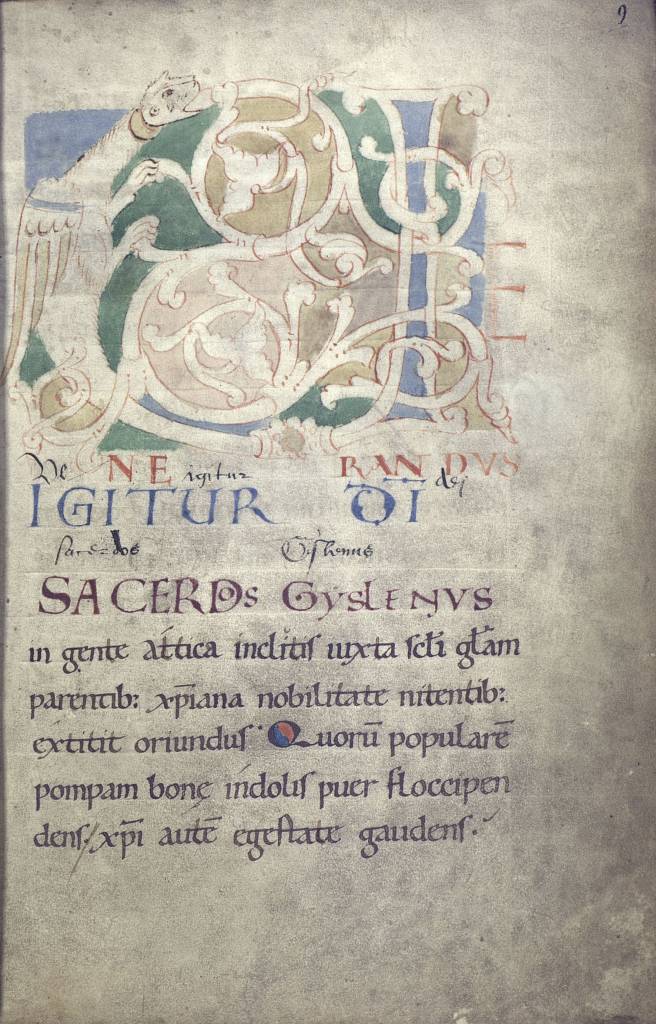 9
Ve NE igitur RANDVS dei
IGITUR DI̅
sacerdos Gislenus
SACERDOs GySLENVS
in gente attica inclitis iuxta sc̅li gl̅am
parentib: xp̅iana nobilitate nitentib:
extitit oriundus· Quoru̅ populare̅
pompam bonę indolis puer floccipen
dens, xp̅i aute̅ egestate gaudens·